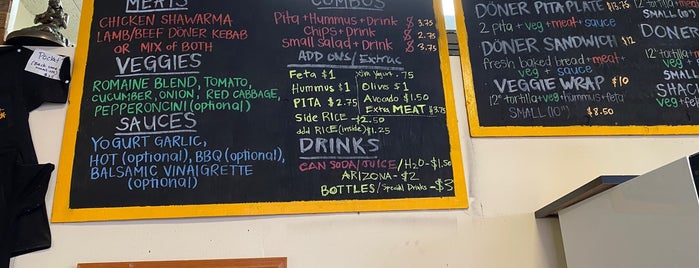 MEATS
CHICKEN SHAWARMA
LAMB/BEEF DÖNER KEBAB
OR MIX OF BOTH
VEGGIES
ROMAINE BLEND, TOMATO,
CUCUMBER, ONION, RED CABBAGE,
PEPPERONCINI (optional)
SAUCES
YOGURT GARLIC,
HOT (optional), BBQ (optional),
BALSAMIC VINAIGRETTE
(optional)
COMBOS
Pita + Hummus + Drink $3.75
Chips + Drink $2.75
small salad + Drink $4.75
ADD ONS/Extras
Feta $1
Hummus $1
PITA $2.75
Side RICE - $2.50
add RICE (inside) $1.25
Yogurt .75
Olives $1
Avocado $1.50
Extra MEAT $3.75
DRINKS
CAN SODA/JUICE/H2O - $1.50
ARIZONA - $2
BOTTLES/Special Drinks - $3
DÖNER PITA PLATE
2 pita + veg + meat + sauce
DÖNER SANDWICH $
fresh baked bread + meat +
veg + sauce
VEGGIE WRAP $10
12" tortilla + veg + hummus + feta
SMALL (10") $8.50
12"
veg
SMALL
SHA
12" to
veg
SMALL